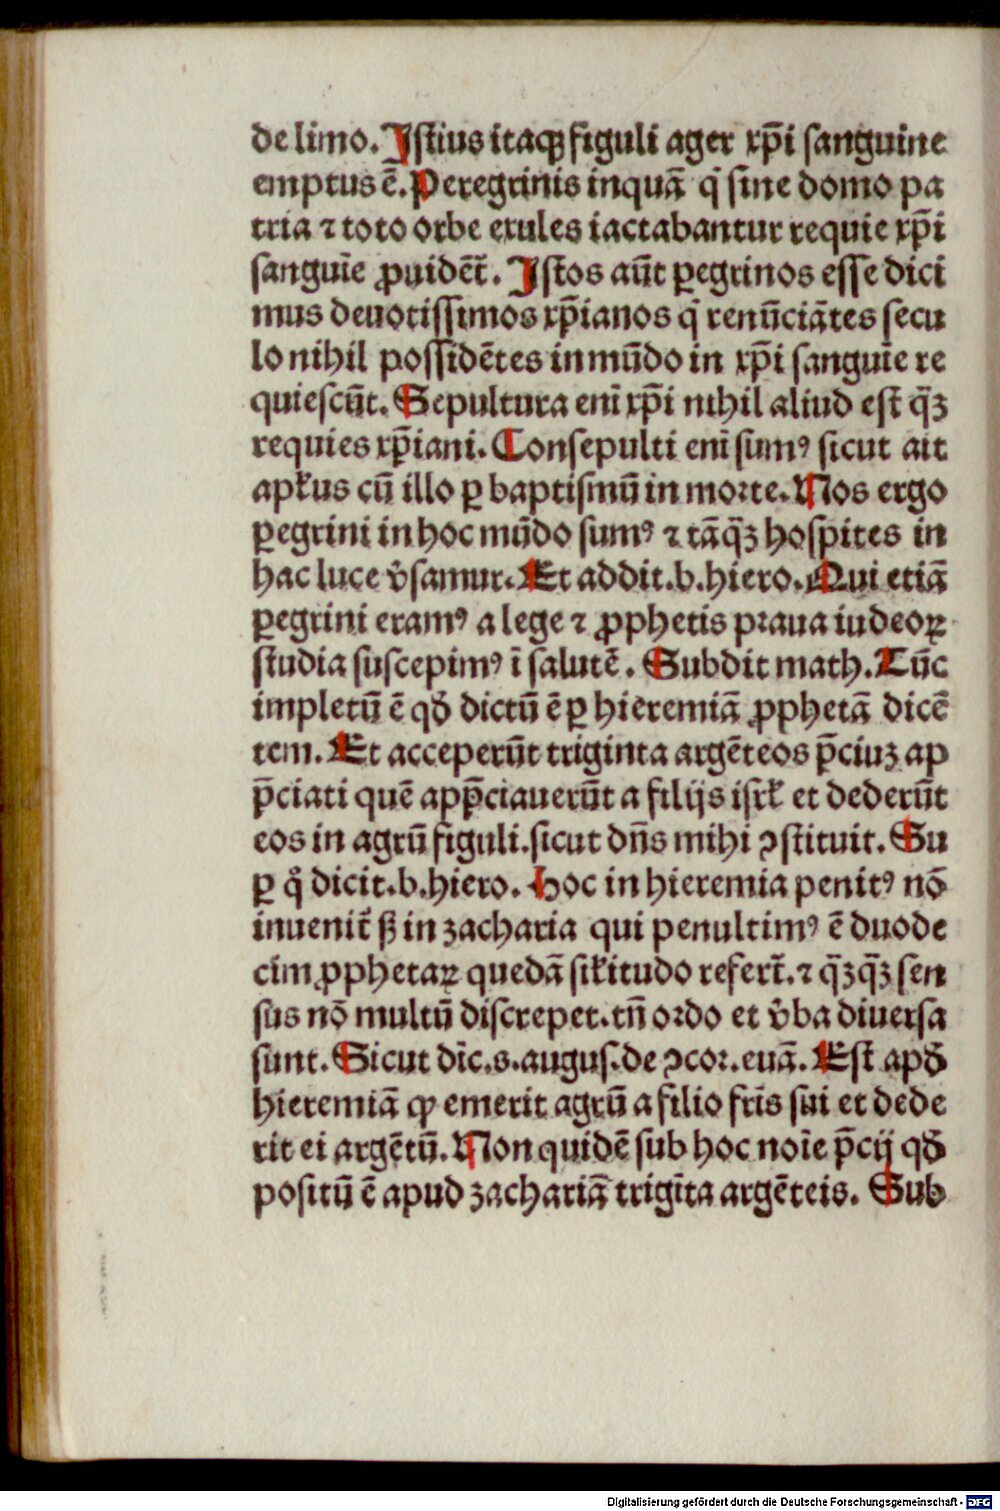 de limo. Istius itaqꝫ figuli ager xp̄i sanguine
emptus ē. Peregrinis inquā q̇ sine domo pa
tria ⁊ toto orbe exules iactabantur requie xp̄i
sanguīe ꝓuidēt̄. Istos aūt ꝑegrinos esse dici
mus deuotissimos xp̄ianos q̇ renūciātes secu
lo nihil possidētes in mūdo in xp̄i sanguīe re
quiescūt. Sepultura eni xp̄i nihil aliud est q̄ꝫ
requies xp̄iani. Consepulti eni sumꝰ sicut ait
apl̄us cū illo ꝑ baptismū in morte. Nos ergo
ꝑegrini in hoc mūdo sumꝰ ⁊ tāq̄ꝫ hospites in
hac luce v̓samur. Et addit. b. hiero. Qui etiā
ꝑegrini eramꝰ a lege ⁊ ꝓphetis praua iudeoꝝ
studia suscepimꝰ ī salutē. Subdit math. Tūc
impletū ē qđ dictū ē ꝑ hieremiā ꝓphetā dicē
tem. Et acceperūt triginta argēteos p̄ciuꝫ ap
p̄ciati quē app̄ciauerūt a filijs isrl̄ et dederūt
eos in agrū figuli. sicut dn̄s mihi ꝯstituit. Su
ꝑ q̊ dicit. b. hiero. Hoc in hieremia penitꝰ nō
inuenit̄ ꝟ in zacharia qui penultimꝰ ē duode
cim ꝓphetaꝝ quedā sil̄itudo refert̄. ⁊ q̄ꝫq̄ꝫ sen
sus nō multū discrepet. tn̄ ordo et v̓ba diuersa
sunt. Sicut dic̄. s. augus. de ꝯcor. euā. Est apđ
hieremiā ꝙ emerit agrū a filio fr̄is sui et dede
rit ei argētū. Non quidē sub hoc noīe p̄cij qđ
positū ē apud zachariā trigīta argēteis. Sub
Digitalisierung gefördert durch die Deutsche Forschungsgemeinschaft - DFG